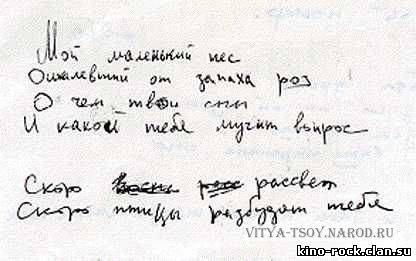 Мой маленький пес
Ошалевший от запаха роз
О чем твои сны
И какой тебе мучит вопрос
Скоро рассвет
Скоро птицы разбудят тебя
VITYA-TSOY.NAROD.RU
kino-rock.clan.su